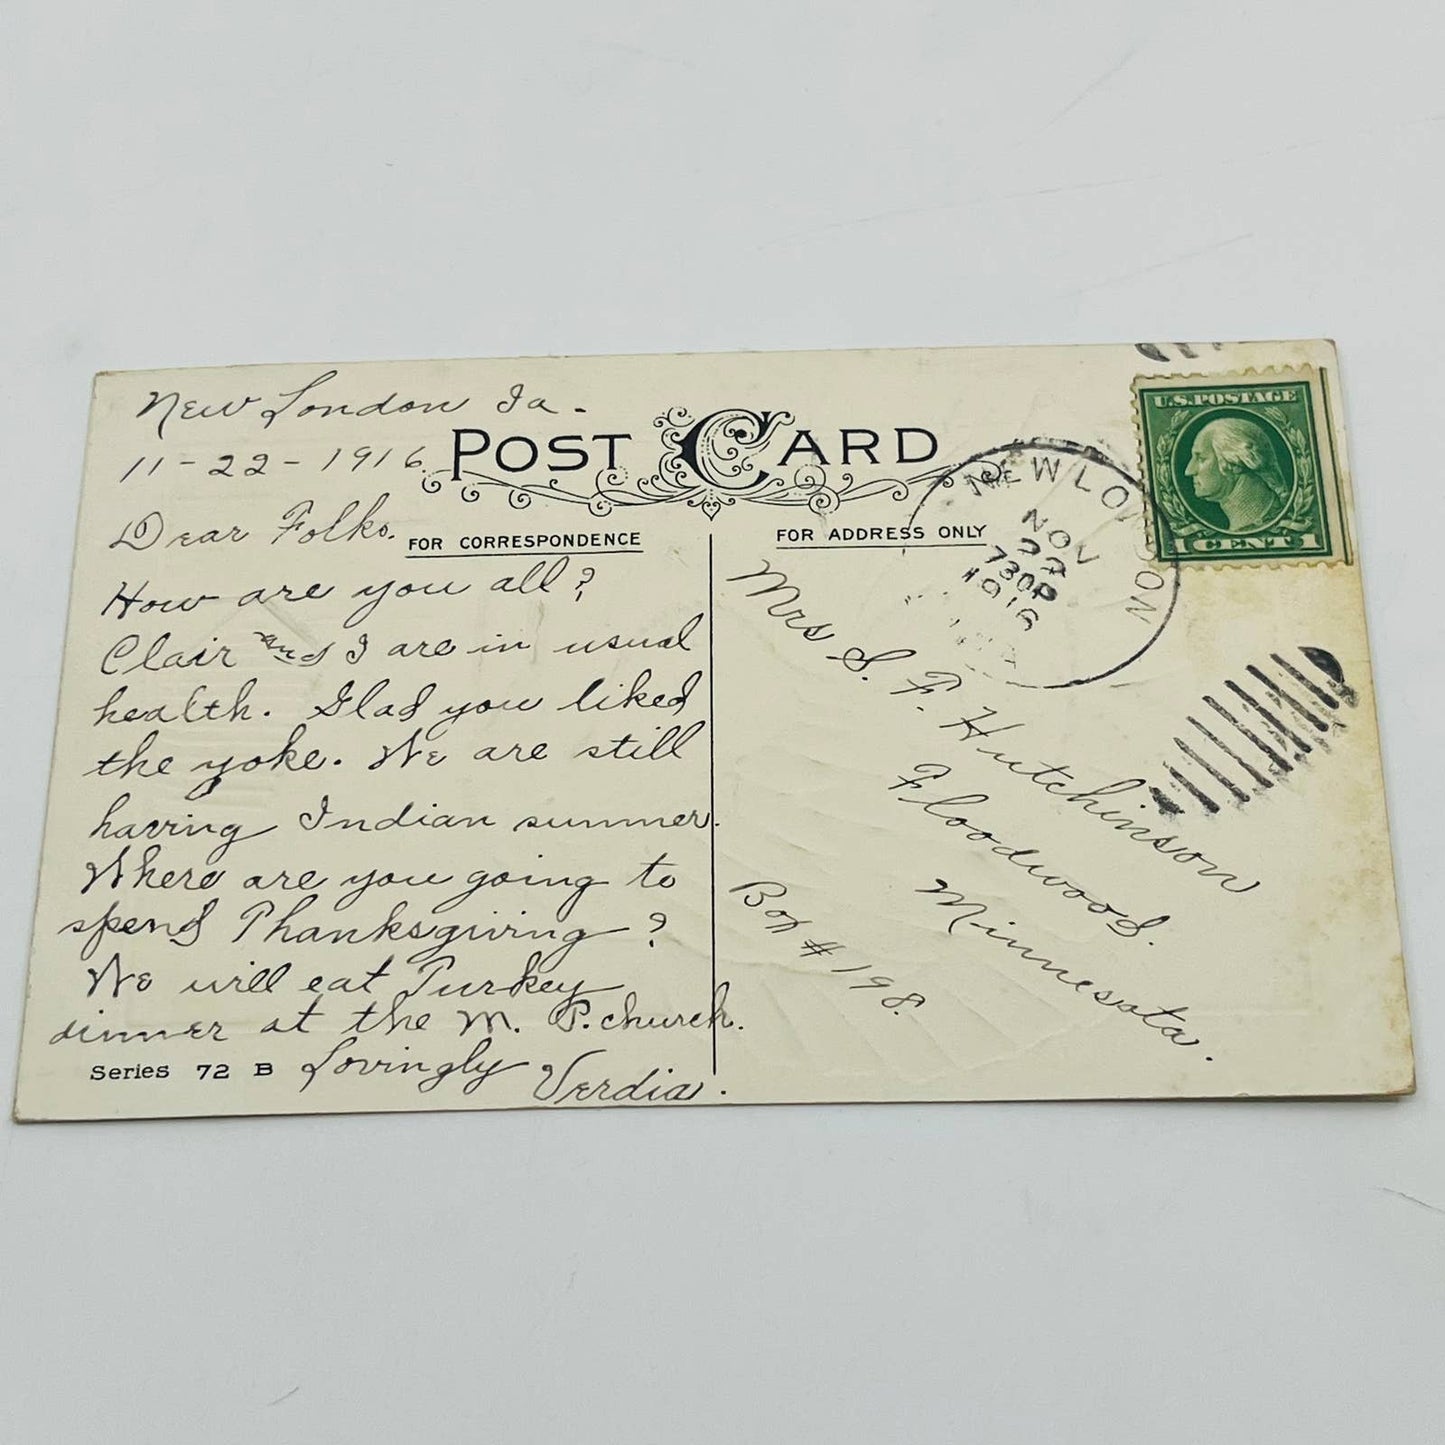 New London Ia.
11-22-1916.
POST CARD
Dear Folks.
FOR CORRESPONDENCE
How are you all?
Clair and I are in usual
health. Glad you liked
the yoke. We are still
having Indian summer.
Where are you going to
spend Thanksgiving?
We will eat Turkey
dinner at the M. P. church.
Series 72 B
Lovingly Verdia.
FOR ADDRESS ONLY
NEW LONDON
NOV
730P
1916
U.S. POSTAGE
1 CENT 1
Mrs S. F. Hutchinson
Floodwood.
Minnesota.
Box #198.